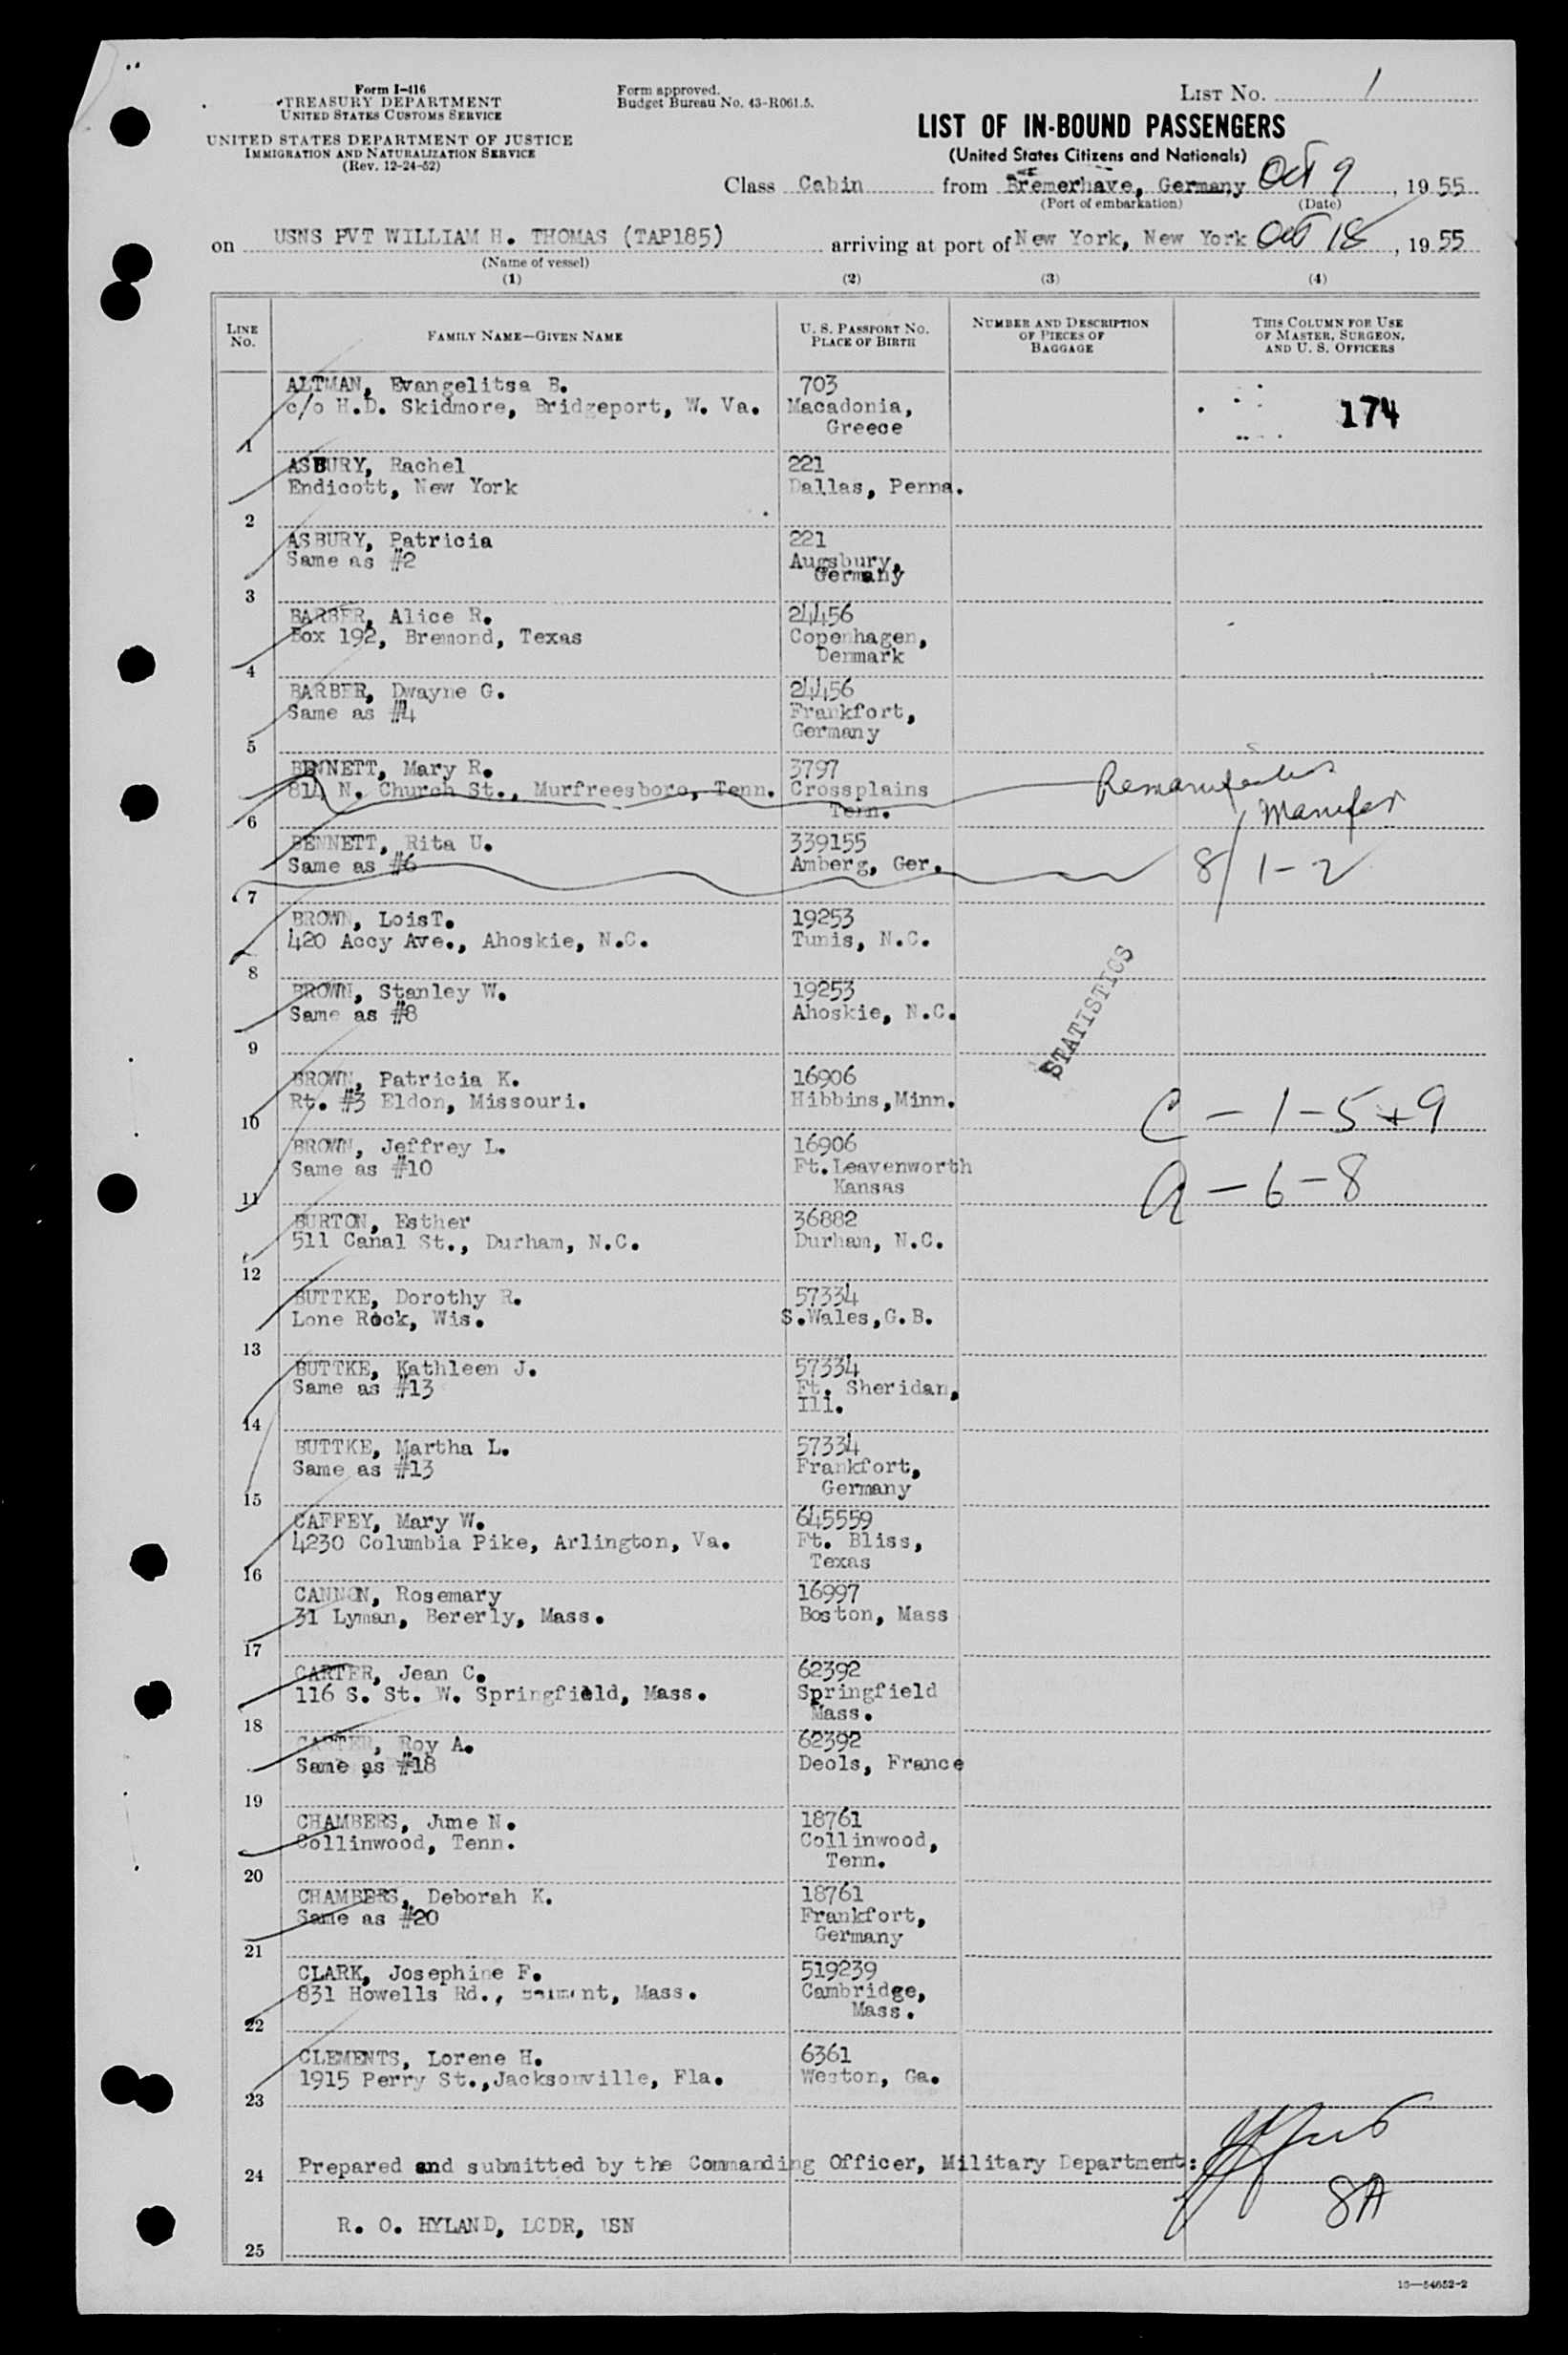 Form I-416
TREASURY DEPARTMENT
UNITED STATES CUSTOMS SERVICE
UNITED STATES DEPARTMENT OF JUSTICE
IMMIGRATION AND NATURALIZATION SERVICE
(Rev. 12-24-52)
Form approved.
Budget Bureau No. 43-R061.5.
LIST NO. 1
LIST OF IN-BOUND PASSENGERS
(United States Citizens and Nationals)
Class Cabin from Bremerhave, Germany Oct 9, 1955
(Port of embarkation) (Date)
on USNS PVT WILLIAM H. THOMAS (TAP185) arriving at port of New York, New York Oct 18, 1955
(Name of vessel)
(1) (2) (3) (4)
LINE NO.
FAMILY NAME—GIVEN NAME
U. S. PASSPORT NO.
PLACE OF BIRTH
NUMBER AND DESCRIPTION
OF PIECES OF
BAGGAGE
THIS COLUMN FOR USE
OF MASTER, SURGEON,
AND U. S. OFFICERS
ALTMAN, Evangelitsa B. 703
c/o H.D. Skidmore, Bridgeport, W. Va. Macadonia, 174
Greece
1
ASBURY, Rachel 221
Endicott, New York Dallas, Penna.
2
ASBURY, Patricia 221
Same as #2 Augsbury,
Germany
3
BARBER, Alice R. 24456
Box 192, Bremond, Texas Copenhagen,
Denmark
4
BARBER, Dwayne G. 24456
Same as #4 Frankfort,
Germany
5
BENNETT, Mary R. 3797
814 N. Church St., Murfreesboro, Tenn. Crossplains
Tenn.
6
BENNETT, Rita U. 339155
Same as #6 Amberg, Ger. 8/1-2
7
BROWN, LoisT. 19253
420 Accy Ave., Ahoskie, N.C. Tunis, N.C.
8
BROWN, Stanley W. 19253
Same as #8 Ahoskie, N.C.
9
STATISTICS
BROWN, Patricia K. 16906
Rt. #3 Eldon, Missouri. Hibbins,Minn.
10 C - 1-5+9
BROWN, Jeffrey L. 16906
Same as #10 Ft.Leavenworth
Kansas
11 A - 6-8
BURTON, Esther 36882
511 Canal St., Durham, N.C. Durham, N.C.
12
BUTTKE, Dorothy R. 57334
Lone Rock, Wis. S.Wales,G.B.
13
BUTTKE, Kathleen J. 57334
Same as #13 Ft. Sheridan,
Ill.
14
BUTTKE, Martha L. 57334
Same as #13 Frankfort,
Germany
15
CAFFEY, Mary W. 645559
4230 Columbia Pike, Arlington, Va. Ft. Bliss,
Texas
16
CANNON, Rosemary 16997
31 Lyman, Bererly, Mass. Boston, Mass
17
CARTER, Jean C. 62392
116 S. St. W. Springfield, Mass. Springfield
Mass.
18
CARTER, Roy A. 62392
Same as #18 Deols, France
19
CHAMBERS, June N. 18761
Collinwood, Tenn. Collinwood,
Tenn.
20
CHAMBERS, Deborah K. 18761
Same as #20 Frankfort,
Germany
21
CLARK, Josephine F. 519239
831 Howells Rd., Mass. Cambridge,
Mass.
22
CLEMENTS, Lorene H. 6361
1915 Perry St.,Jacksonville, Fla. Weston, Ga.
23
24 Prepared and submitted by the Commanding Officer, Military Department:
8A
R. O. HYLAND, LCDR, USN
25
16—54652-2